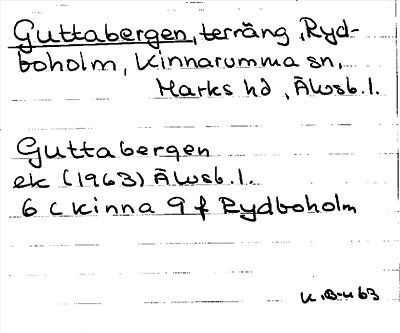 Guttabergen, terräng, Ryd-
boholm, Kinnarumma sn,
Marks hd, Älvsb. l.
Guttabergen
ek (1963) Älvsb. l.
6 C Kinna 9 f Rydboholm